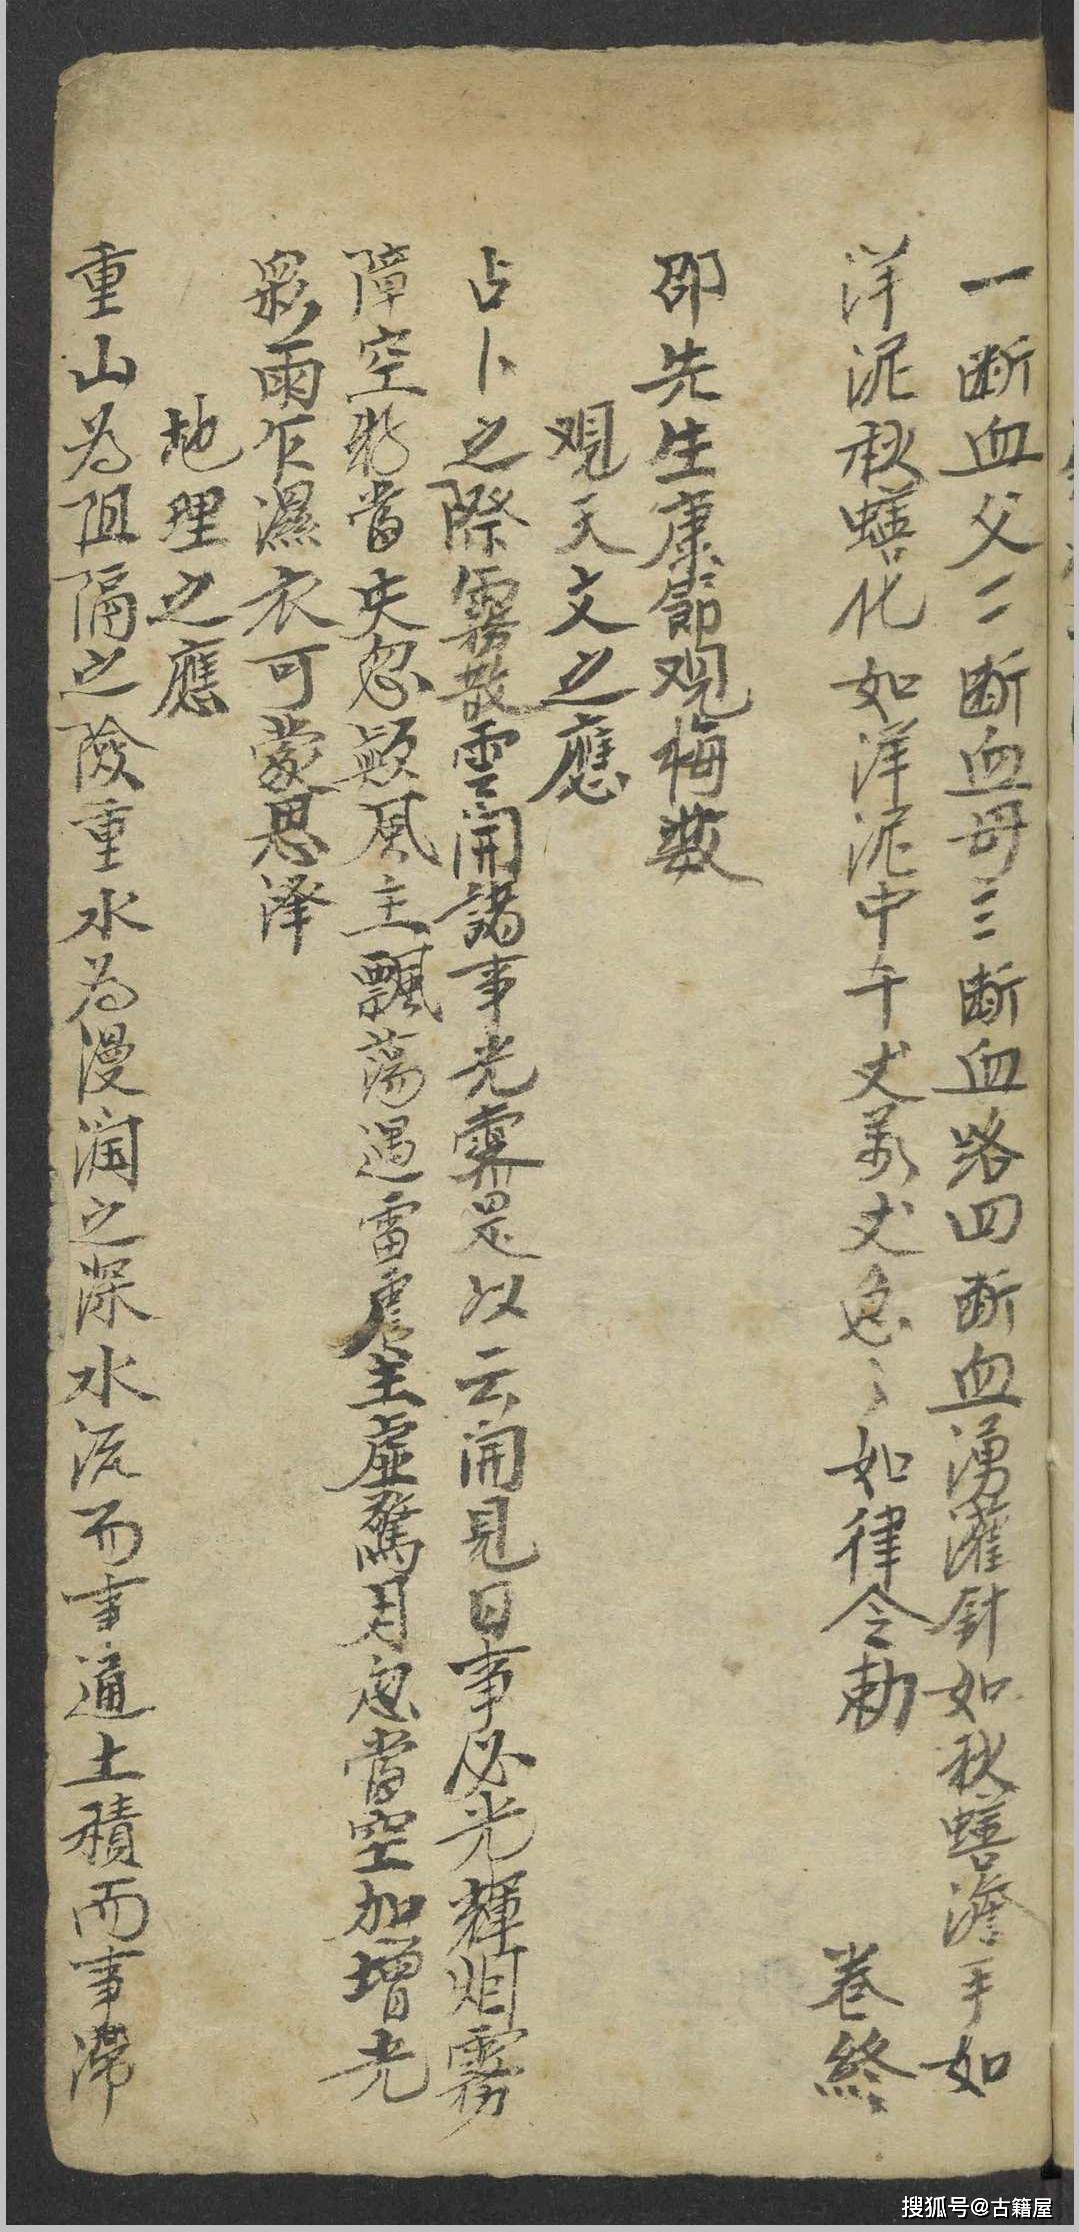 一断血父二断血母三断血路四断血湧灌针如秋蟮澹手如
洋泥秋蟮化如洋泥中千丈萬丈急〻如律令勅　卷終
邵先生康節观梅数
观天文之應
占卜之際霧散雲開諸事光霽是以云開見日事必光輝烟霧
障空形當失忽颠風主飄蕩遇雷震主虚驚月忽當空加增光
彩雨乍濕衣可蒙恩泽
地理之應
重山为阻隔之險重水为漫润之深水流而事通土積而事滞
搜狐号@古籍屋